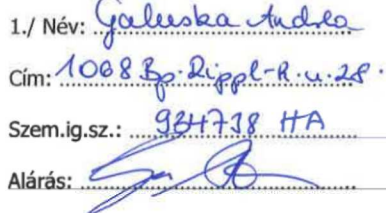 1./ Név: Galuska Andrea
Cím: 1068 Bp. Rippl-R. u. 28.
Szem.ig.sz.: 934738 HA
Alárás: